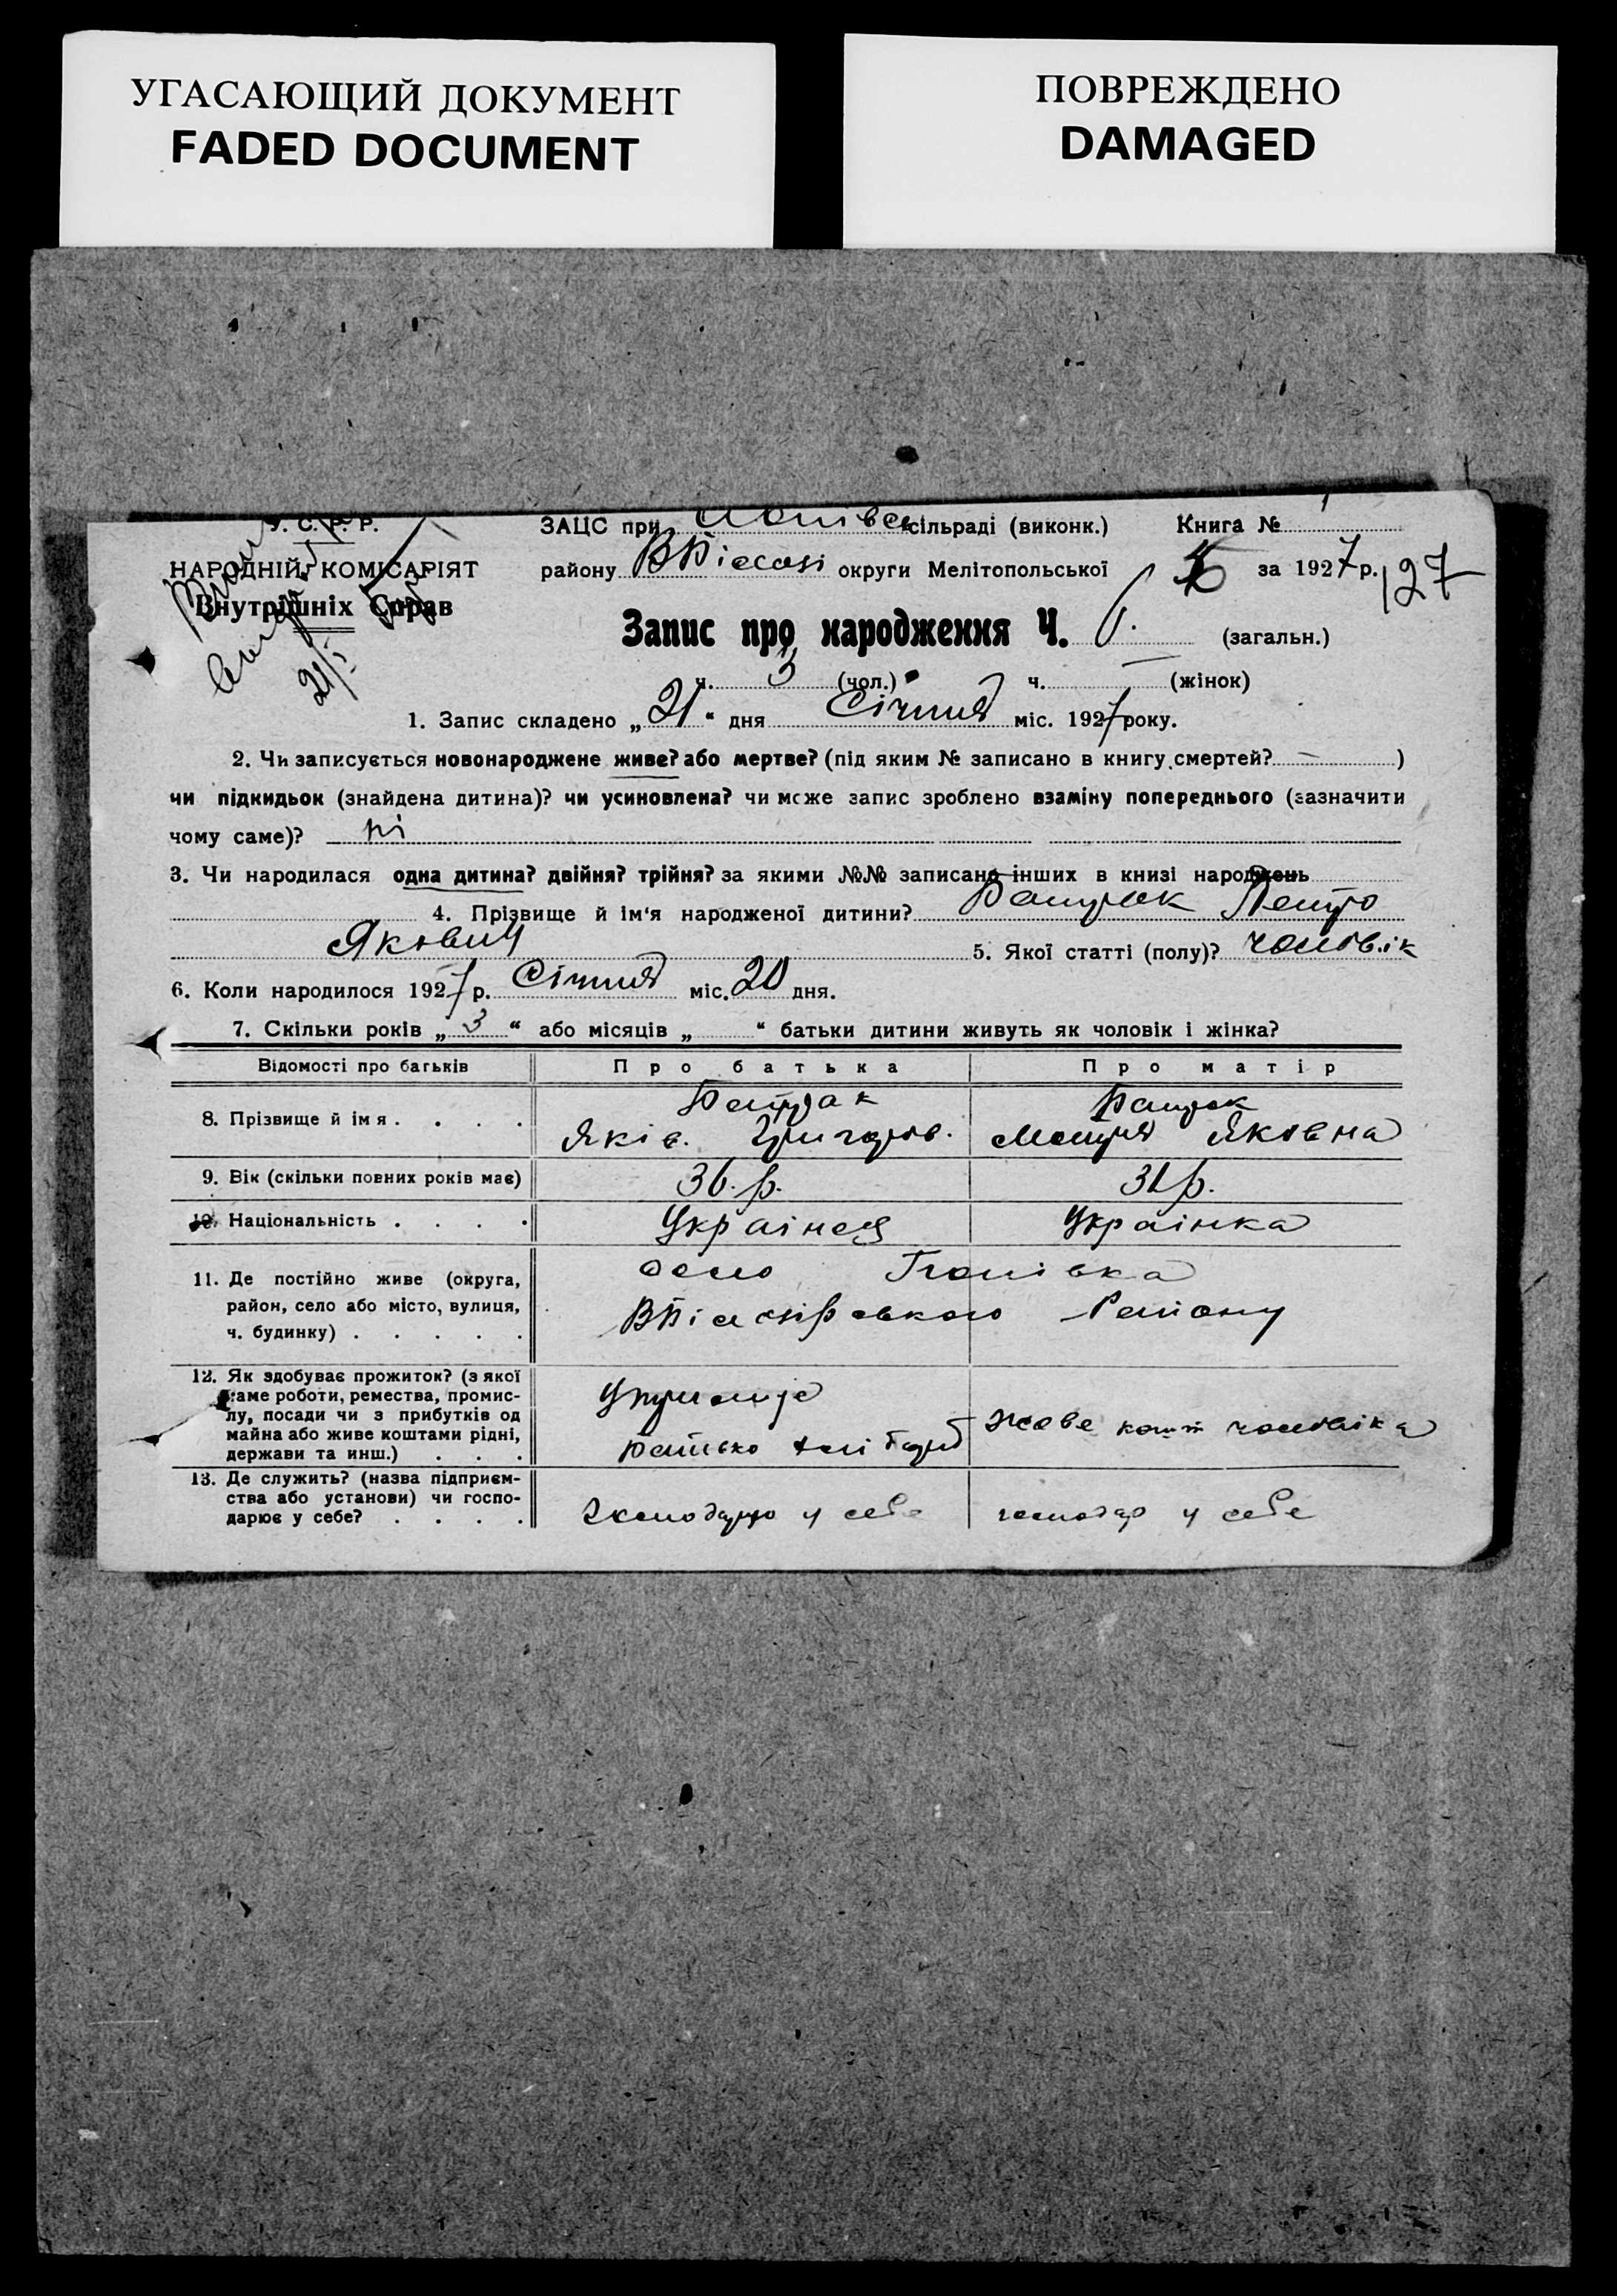 УГАСАЮЩИЙ ДОКУМЕНТ
FADED DOCUMENT
ПОВРЕЖДЕНО
DAMAGED
У. С. Р. Р.
НАРОДНІЙ КОМІСАРІЯТ
Внутрішніх Справ
21/I
ЗАЦС при сільраді (виконк.) Книга № 1
району округи Мелітопольської за 1927 р. 127
Запис про народження Ч. 6. (загальн.)
ч. 3 (чол.) ч. — (жінок)
1. Запис складено „21“ дня Січня міс. 1927 року.
2. Чи записується новонароджене живе? або мертве? (під яким № записано в книгу смертей? — )
чи підкидьок (знайдена дитина)? чи усиновлена? чи може запис зроблено взаміну попереднього (зазначити
чому саме)? ні
3. Чи народилася одна дитина? двійня? трійня? за якими №№ записано інших в книзі народжень
4. Прізвище й ім'я народженої дитини? Батрак Петро
Якович 5. Якої статті (полу)? чоловік
6. Коли народилося 1927 р. Січня міс. 20 дня.
7. Скільки років „3“ або місяців „ “ батьки дитини живуть як чоловік і жінка?
Відомості про батьків Про батька Про матір
8. Прізвище й імя . . . . Батрак Батрак
Яків Григоров. Мотря Яковна
9. Вік (скільки повних років має) 36.р. 31р.
10. Національність . . . . Українец Українка
11. Де постійно живе (округа, село
район, село або місто, вулиця, Району
ч. будинку) . . . . .
12. Як здобуває прожиток? (з якої
саме роботи, ремества, промис-
лу, посади чи з прибутків од
майна або живе коштами рідні, Живе кошт чоловіка
держави та инш.) . . .
13. Де служить? (назва підприєм-
ства або установи) чи госпо-
дарює у себе? . . . . у себе господар у себе